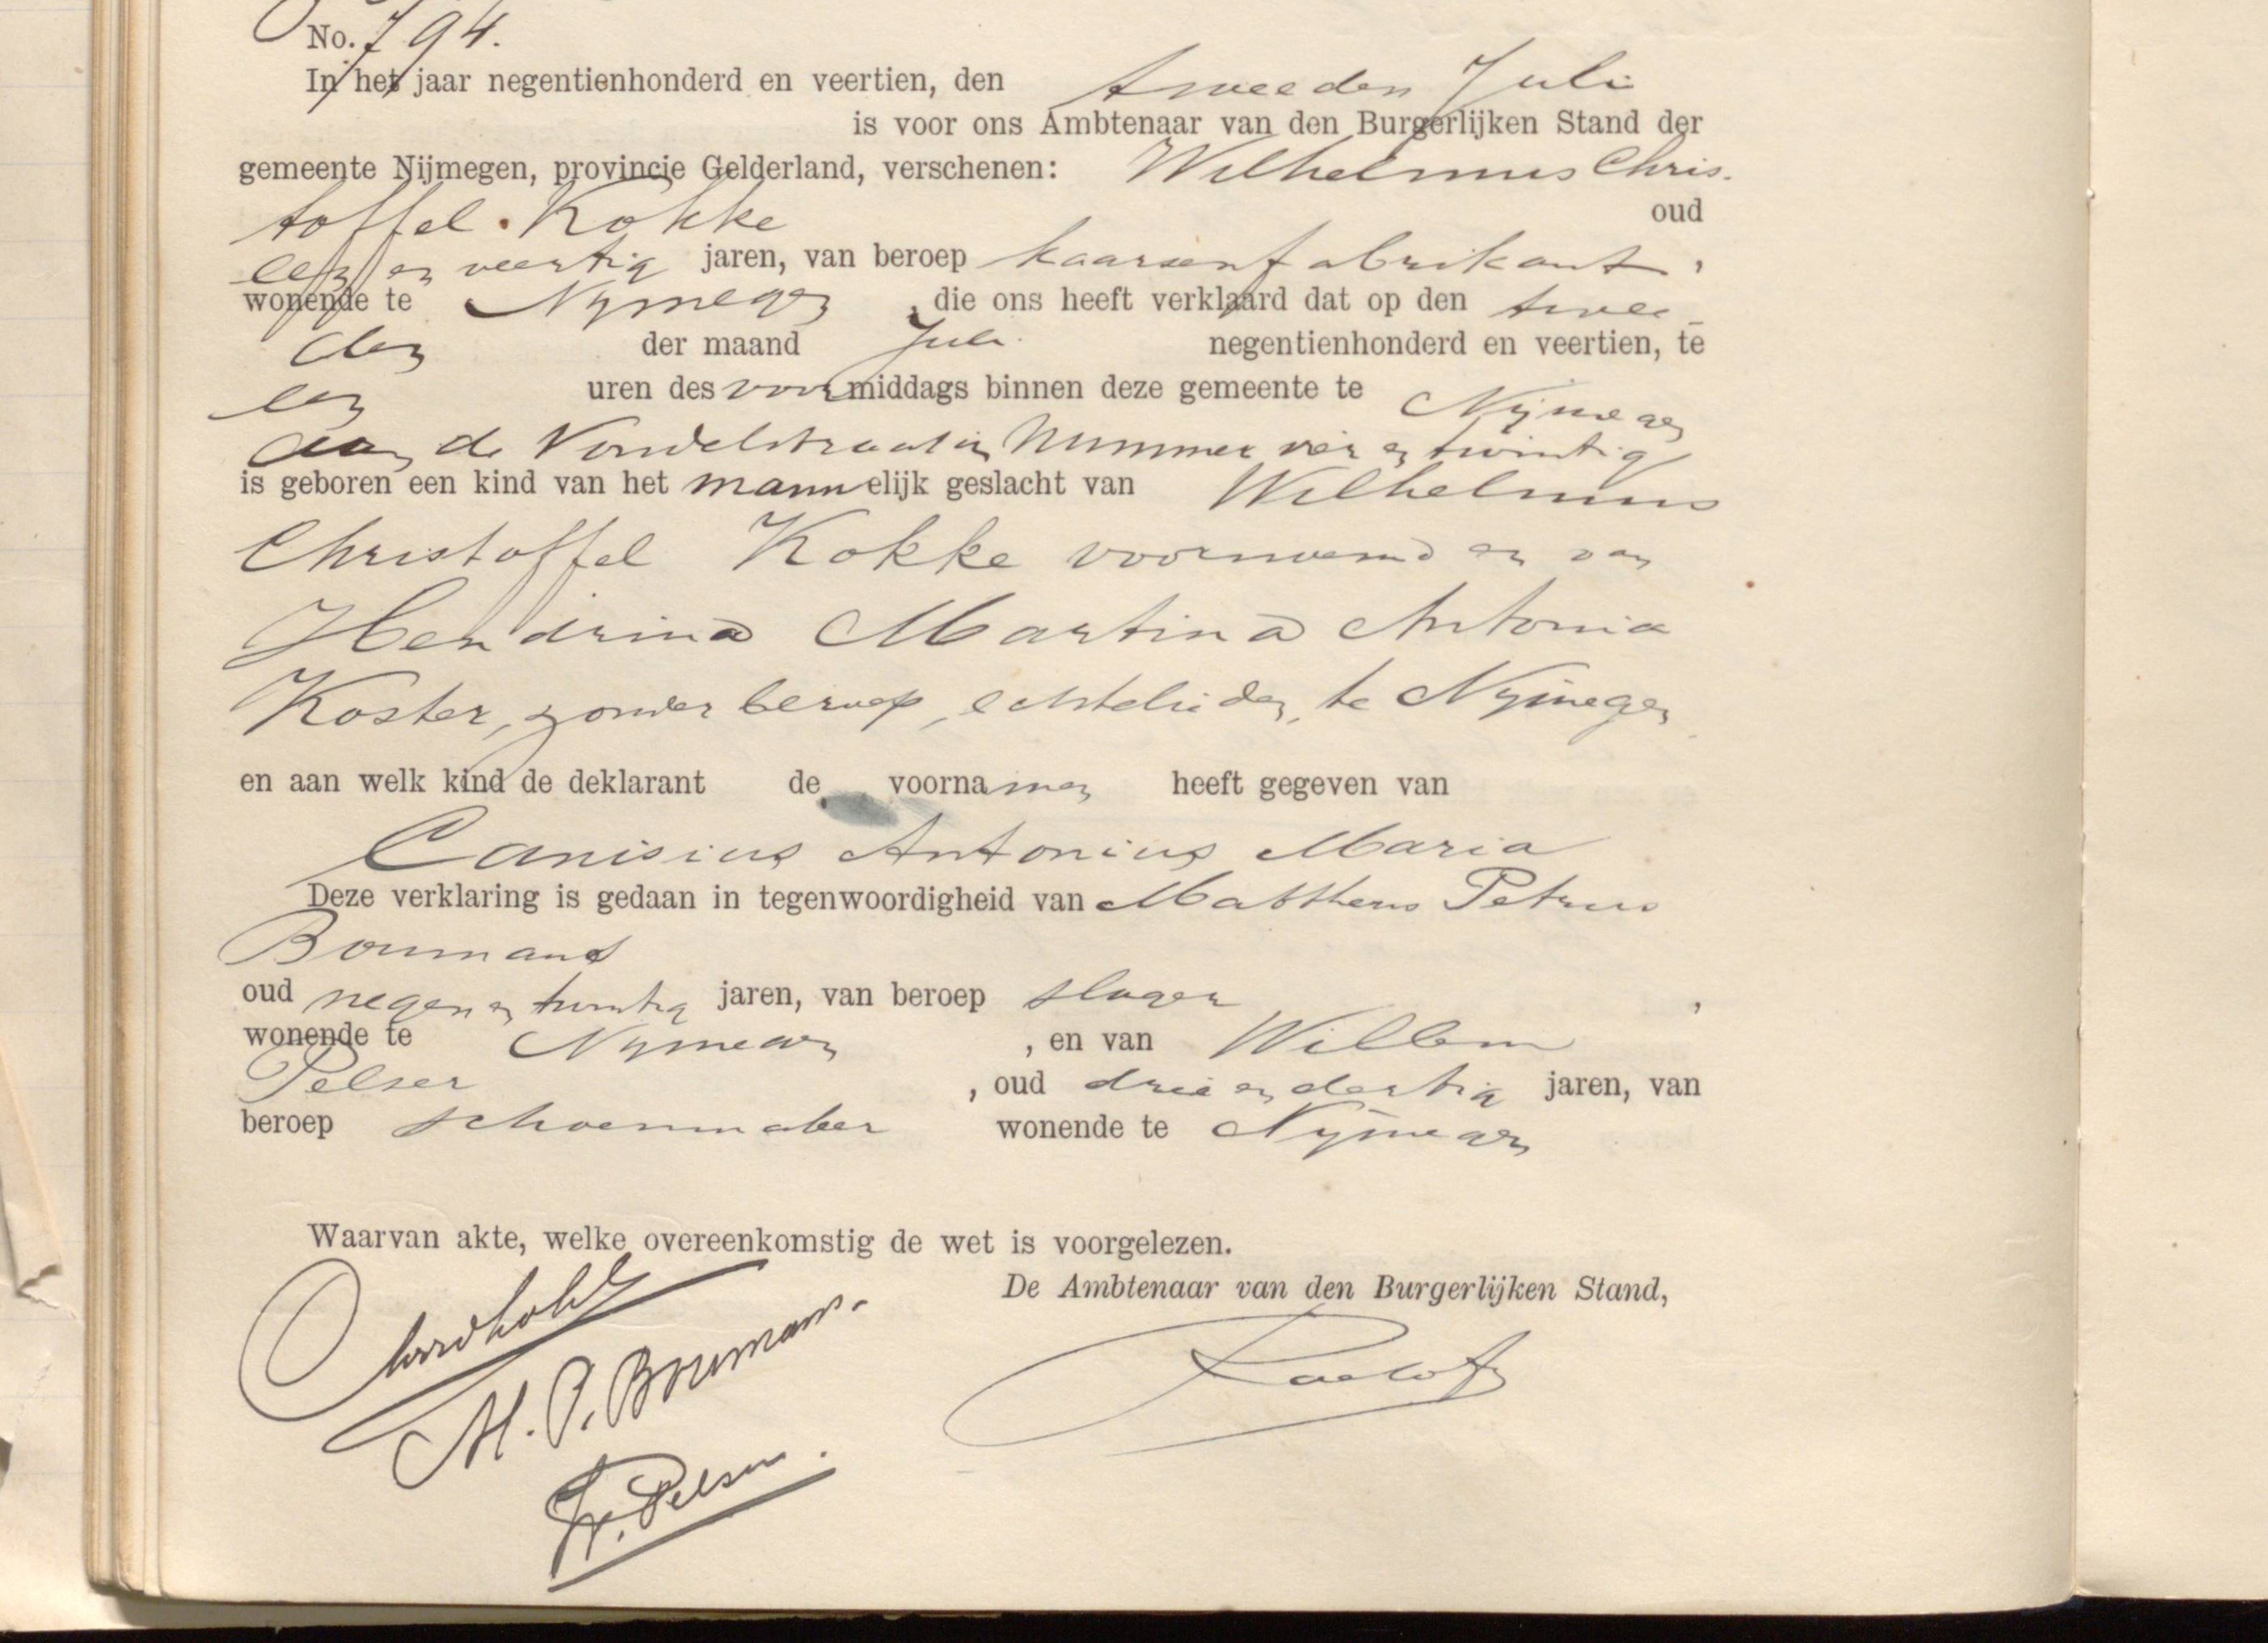 No. 794.
In het jaar negentienhonderd en veertien, den tweeden Juli
is voor ons Ambtenaar van den Burgerlijken Stand der
gemeente Nijmegen, provincie Gelderland, verschenen: Wilhelmus Chris-
toffel Kokke oud
een en veertig jaren, van beroep kaarsenfabrikant,
wonende te Nymegen, die ons heeft verklaard dat op den twee-
den der maand Juli negentienhonderd en veertien, te
een uren des voormiddags binnen deze gemeente te Nijmegen
aan de Vondelstraat in Nummer vier en twintig
is geboren een kind van het mannelijk geslacht van Wilhelmus
Christoffel Kokke voornoemd en van
Hendrina Martina Antonia
Koster, zonder beroep, echtelieden, te Nymegen
en aan welk kind de deklarant de voornamen heeft gegeven van
Canisius Antonius Maria
Deze verklaring is gedaan in tegenwoordigheid van Mattheus Petrus
Boumans
oud negen en twintig jaren, van beroep slager,
wonende te Nymegen, en van Willem
Pelser, oud drie en dertig jaren, van
beroep schoenmaker wonende te Nymegen
Waarvan akte, welke overeenkomstig de wet is voorgelezen.
De Ambtenaar van den Burgerlijken Stand,
M. P. Boumans.
W. Pelser.